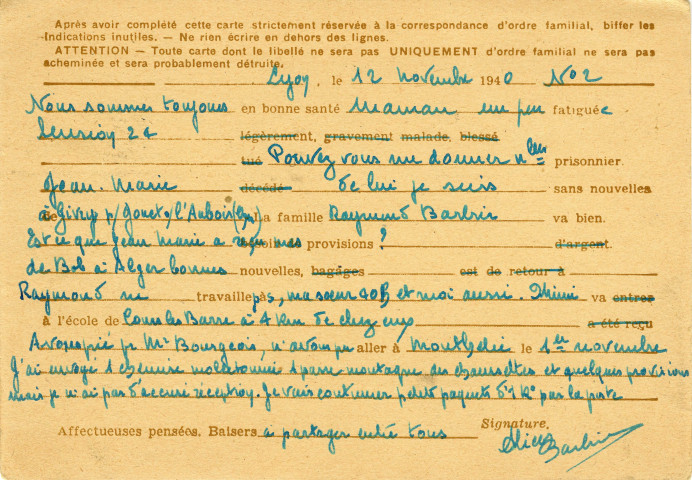 Après avoir complété cette carte strictement réservée à la correspondance d'ordre familial, biffer les
indications inutiles. — Ne rien écrire en dehors des lignes.
ATTENTION — Toute carte dont le libellé ne sera pas UNIQUEMENT d'ordre familial ne sera pas
acheminée et sera probablement détruite.
Lyon, le 12 novembre 1940 No 2
Nous sommes toujours en bonne santé Maman un peu fatiguée
24 légèrement, gravement malade, blessé
tué Pouvez vous me donner nlles prisonnier.
Jean-Marie décédé de lui je suis sans nouvelles
à Givry p/ Jouet s/ l'Aubois (Cher) La famille Raymond Barbrir va bien.
Est ce que Jean Marie a reçu mes provisions ? d'argent.
de Bob à Alger bonnes nouvelles, bagages est de retour à
Raymond ne travaille pas, ma sœur et moi aussi. Mimi va entrer
à l'école de Cours les Barre à 4 km de chez eux a été reçu
pr Mr Bourgeois, aller à le 1er novembre
J'ai envoyé 1 chemise molletonnée 1 passe montagne des chaussettes et quelques provisions
mais je n'ai pas d'accusé réception. Je vais continuer petits paquets d'1 Ko par la poste
Affectueuses pensées. Baisers à partager entre tous Signature.
Alice Barbrir